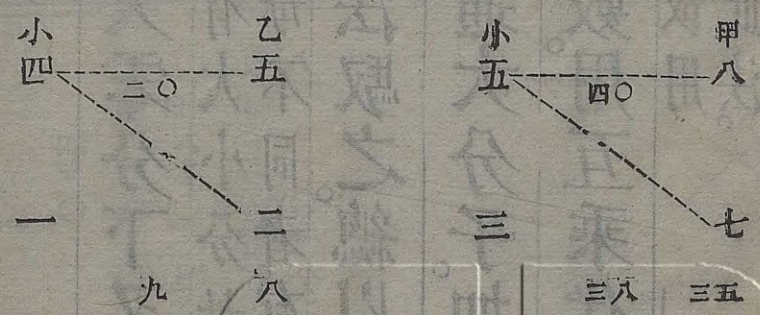 甲 小
八 四〇 五
七 三
三五 三八
乙 小
五 二〇 四
二 一
八 九